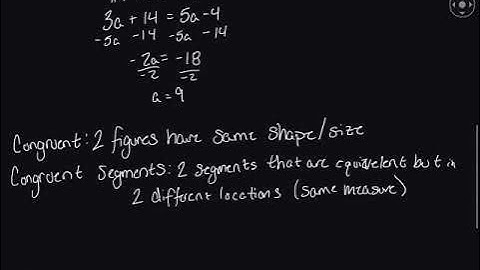 3a + 14 = 5a - 4
-5a -14 -5a -14
-2a = -18
-2 -2
a = 9
Congruent: 2 figures have same shape/size
Congruent Segments: 2 segments that are equivalent but in
2 different locations (same measure)